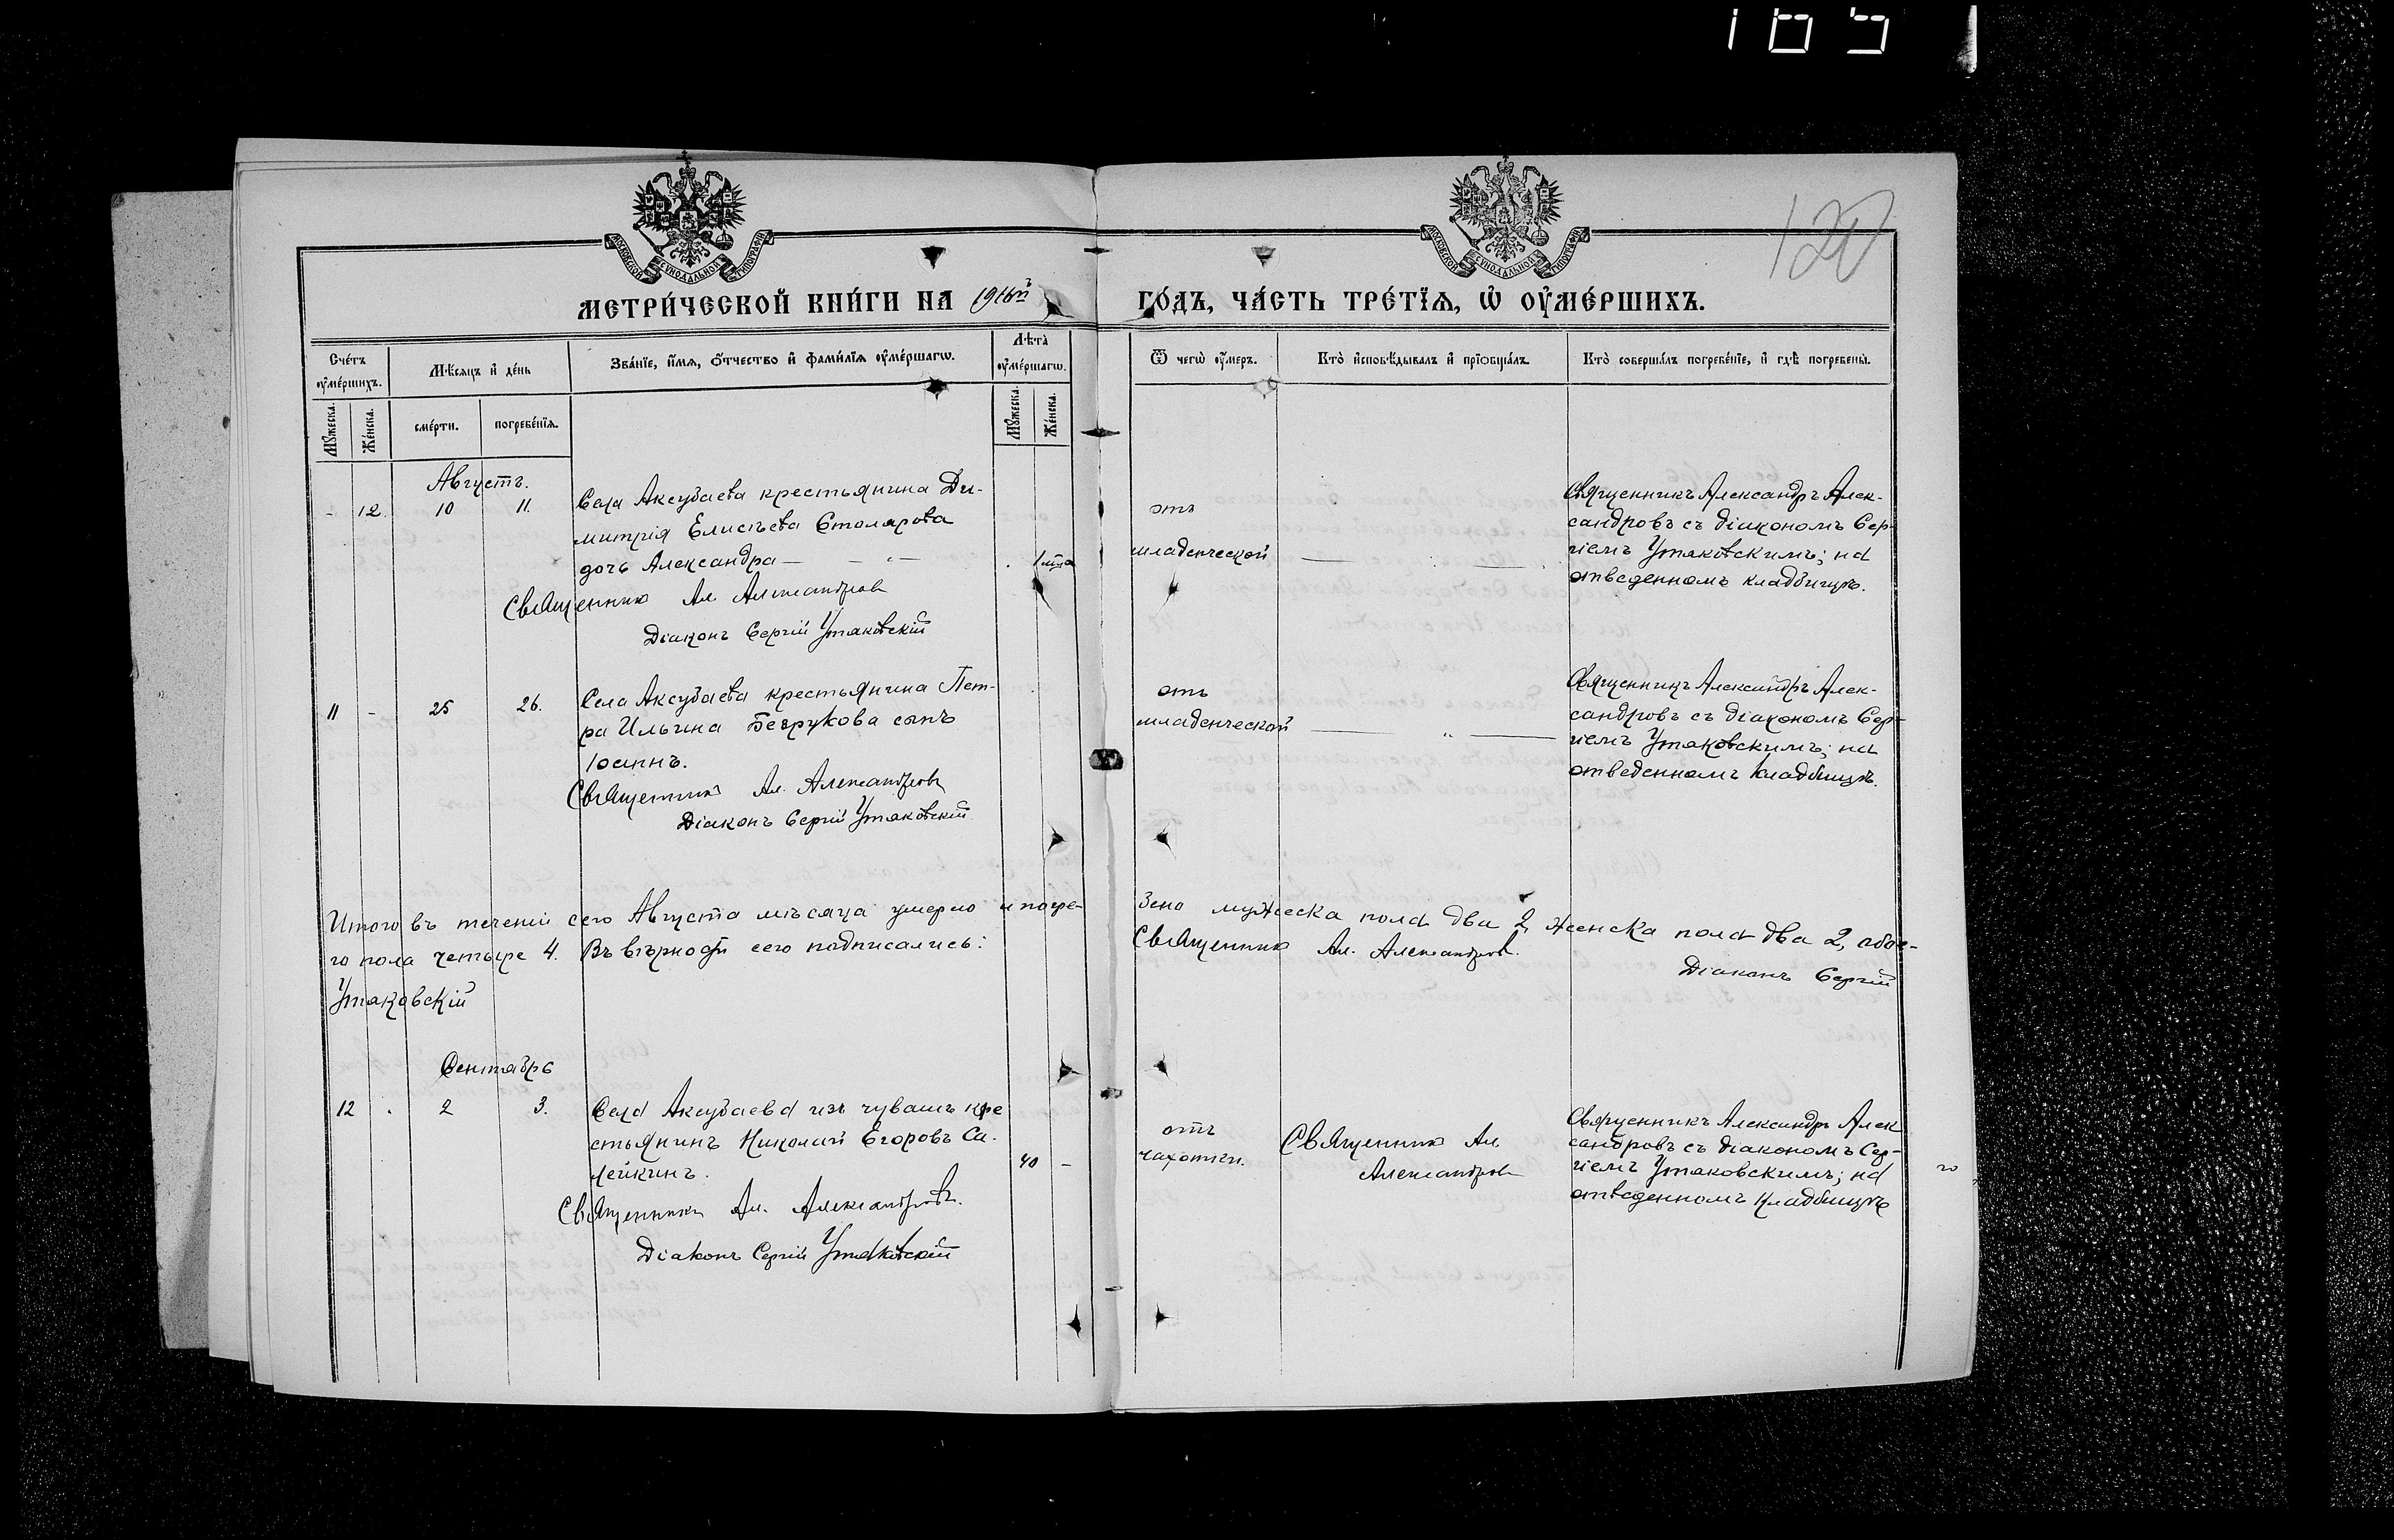 165
120
МОСКОВСКОЙ СѴНОДАЛЬНОЙ ТИПОГРАФІИ
МОСКОВСКОЙ СѴНОДАЛЬНОЙ ТИПОГРАФІИ
МЕТРИ́ЧЕСКОЙ КНИ́ГИ НА 1916й ГО́ДЪ, ЧА́СТЬ ТРЕ́ТЇѦ, Ѡ҆ ОУ҆МЕ́РШИХЪ.
Сче́тъ оу҆ме́ршихъ.
Мѣ́сяцъ и҆ де́нь
Зва́нїе, и҆́мѧ, ѻ҆́тчество и҆ фами́лїѧ оу҆ме́ршагѡ.
Лѣ́та оу҆ме́ршагѡ.
Ѿ чегѡ̀ оу҆́меръ.
Кто̀ и҆сповѣ́дывалъ и҆ прїѻбща́лъ.
Кто̀ соверша́лъ погребе́нїе, и҆ гдѣ̀ погребены̀.
Мꙋ́жеска. Же́нска. сме́рти. погребе́нїѧ. Мꙋ́жеска Же́нска.
Августъ.
- 12. 10 11.
Села Аксубаева крестьянина Ди-
митрія Елисѣева Столярова
дочь Александра —
Священникъ Ал. Александровъ
Діаконъ Сергій Утяковскій
отъ
младенческой
Священникъ Александръ Алек-
сандровъ съ діакономъ Сер-
гіемъ Утяковскимъ; на
отведенномъ кладбищѣ.
11 - 25 26.
Села Аксубаева крестьянина Пет-
ра Ильина Безрукова сынъ
Іоаннъ.
Священникъ Ал. Александровъ
Діаконъ Сергій Утяковскій
отъ
младенческой — „ —
Священникъ Александръ Алек-
сандровъ съ діакономъ Сер-
гіемъ Утяковскимъ; на
отведенномъ кладбищѣ.
Итого въ теченіи сего Августа мѣсяца умерло и погре-
бено мужеска пола два 2, женска пола два 2, обое-
го пола четыре 4. Въ вѣрности сего подписались:
Священникъ Ал. Александровъ.
Діаконъ Сергій
Утяковскій
Сентябрь
12 . 2 3.
Села Аксубаева изъ чувашъ кре
стьянинъ Николай Егоровъ Са-
лейкинъ.
40 -
Священникъ Ал. Александровъ.
Діаконъ Сергій Утяковскій
отъ
чахотки.
Священникъ Ал
Александровъ
Священникъ Александръ Алек
сандровъ съ діакономъ Сер-
гіемъ Утяковскимъ; на
отведенномъ кладбищѣ